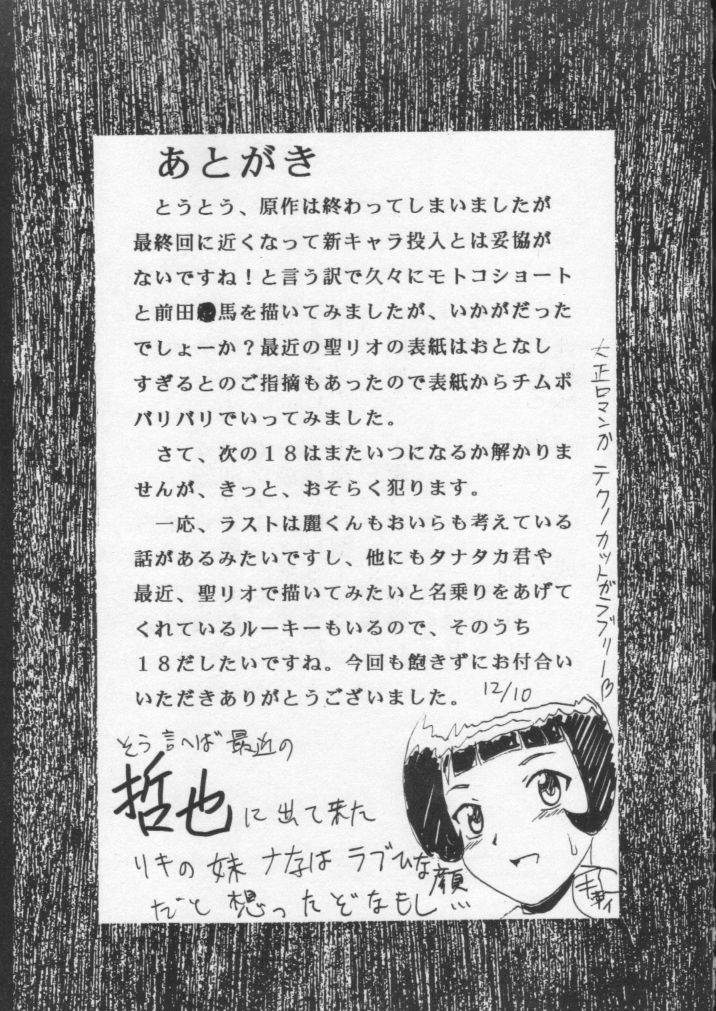 あとがき
とうとう、原作は終わってしまいましたが
最終回に近くなって新キャラ投入とは妥協が
ないですね！と言う訳で久々にモトコショート
と前田馬を描いてみましたが、いかがだった
でしょーか？最近の聖リオの表紙はおとなし
すぎるとのご指摘もあったので表紙からチムポ
バリバリでいってみました。
さて、次の１８はまたいつになるか解かりま
せんが、きっと、おそらく犯ります。
一応、ラストは麗くんもおいらも考えている
話があるみたいですし、他にもタナタカ君や
最近、聖リオで描いてみたいと名乗りをあげて
くれているルーキーもいるので、そのうち
１８だしたいですね。今回も飽きずにお付合い
いただきありがとうございました。 12/10
大正ロマンが テクノカットがラブリー♡
そう言へば最近の
哲也に出て来た
リキの妹 ナナは ラブひな顔
だと想ったぞなもし